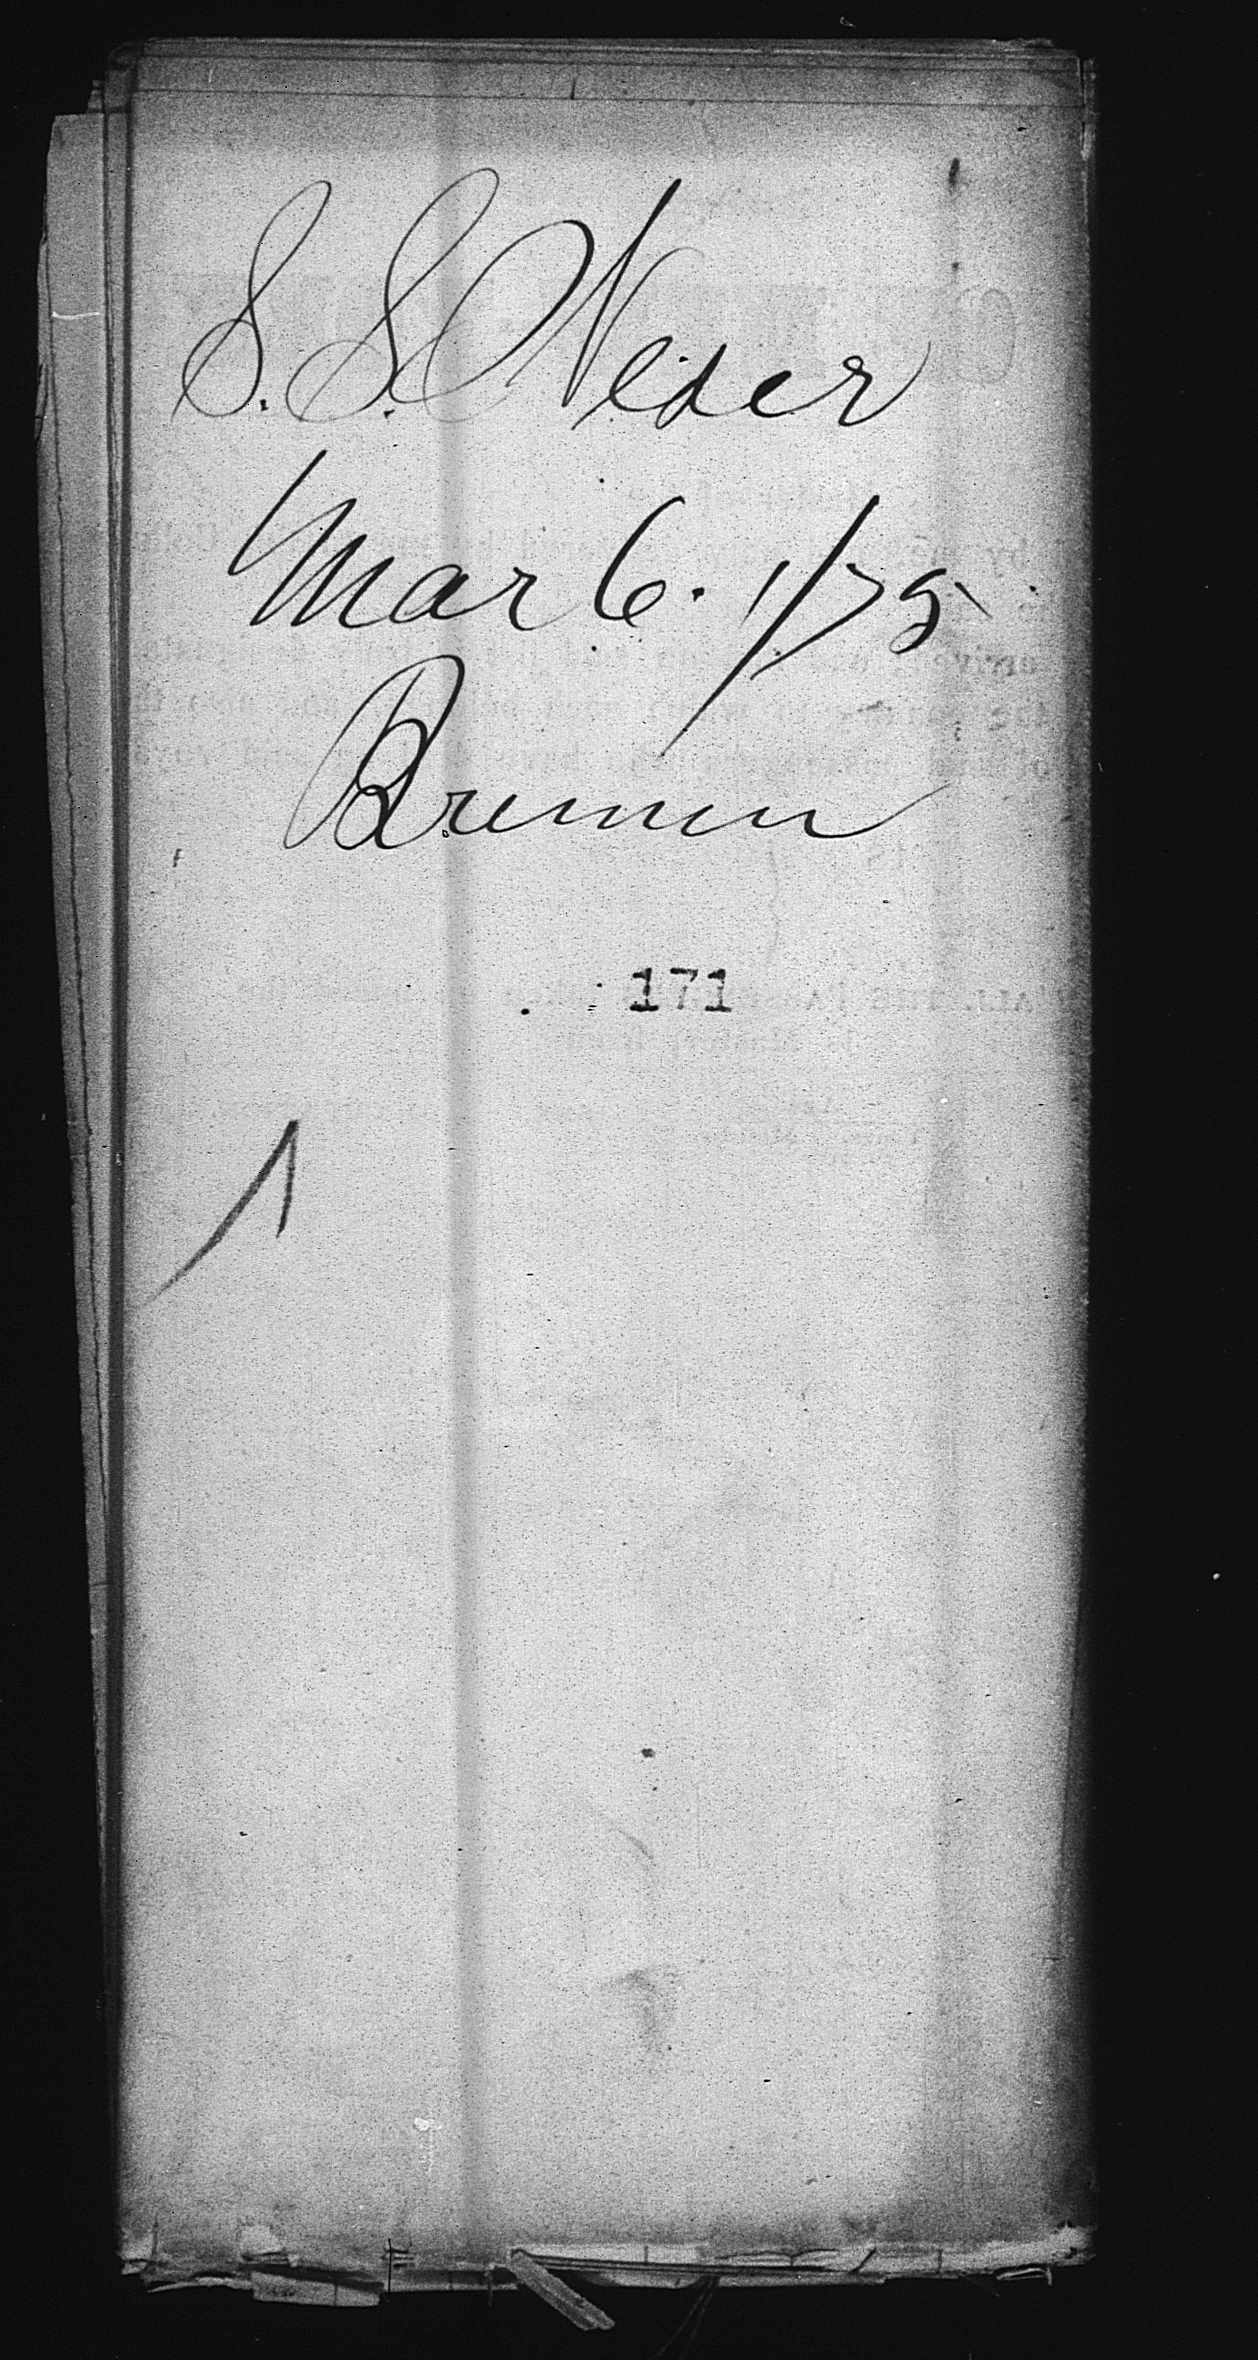 S. S. Weser
Mar 6. 1/75
Bremen
171